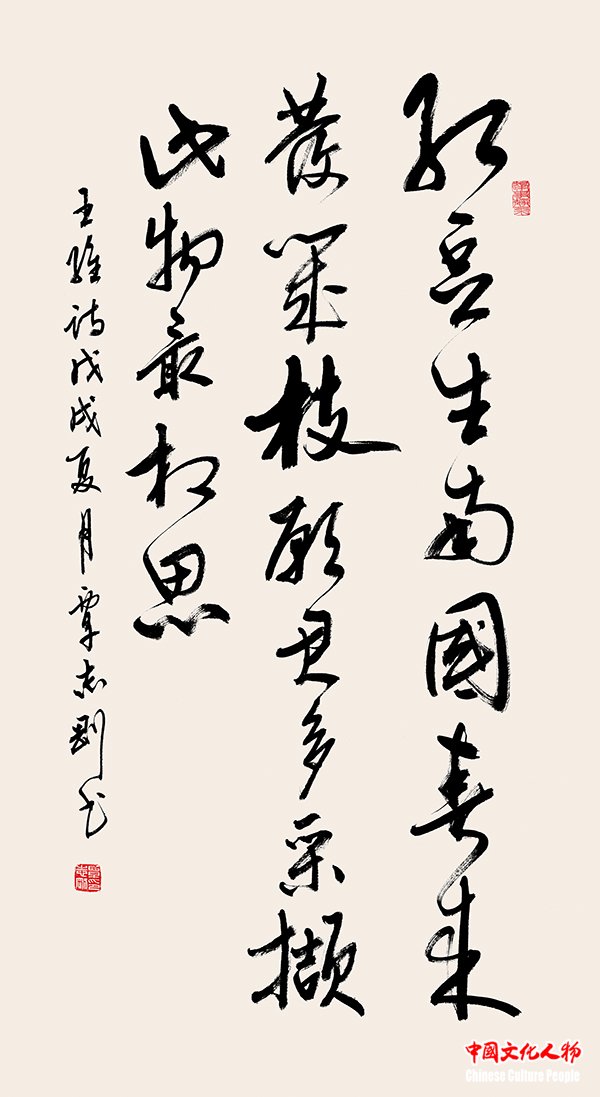 红豆生南國春来
發幾枝願君多采擷
此物最相思
王維诗戊戌夏月覃志剛书
中國文化人物
Chinese Culture People